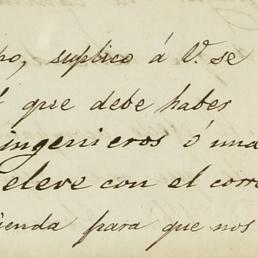 suplico á V. se
que debe haber
ingenieros ó una
eleve con el corre
para que nos